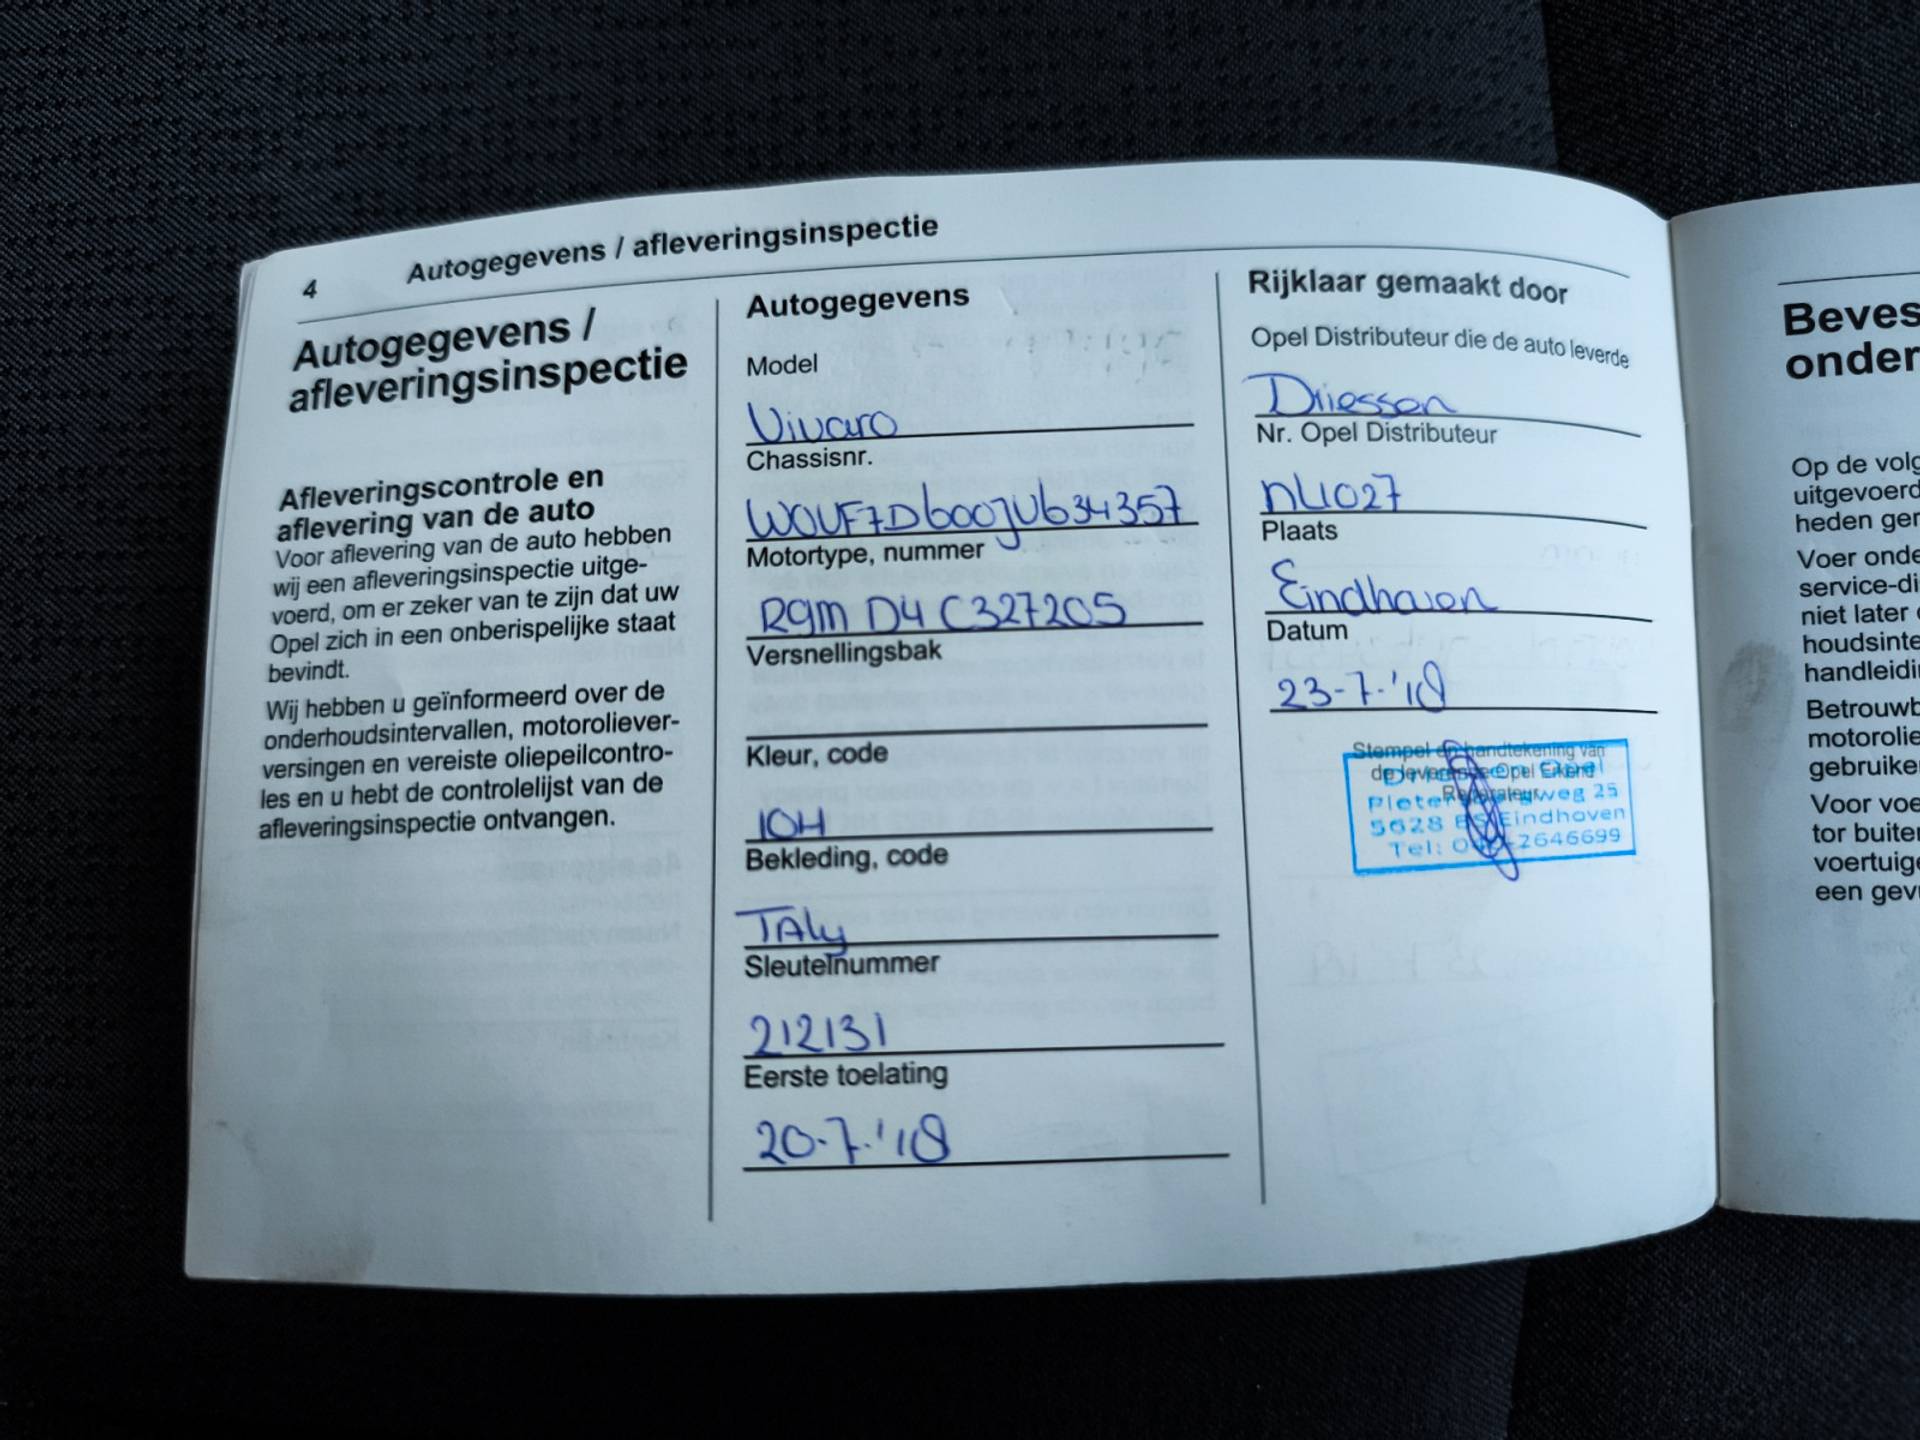 4
Autogegevens / afleveringsinspectie
Autogegevens /
afleveringsinspectie
Afleveringscontrole en
aflevering van de auto
Voor aflevering van de auto hebben
wij een afleveringsinspectie uitge-
voerd, om er zeker van te zijn dat uw
Opel zich in een onberispelijke staat
bevindt.
Wij hebben u geïnformeerd over de
onderhoudsintervallen, motoroliever-
versingen en vereiste oliepeilcontro-
les en u hebt de controlelijst van de
afleveringsinspectie ontvangen.
Autogegevens
Model
Vivaro
Chassisnr.
W0VF7D600JV634357
Motortype, nummer
R9M D4 C327205
Versnellingsbak
Kleur, code
10H
Bekleding, code
TALy
Sleutelnummer
212131
Eerste toelating
20-7-'18
Rijklaar gemaakt door
Opel Distributeur die de auto leverde
Driessen
Nr. Opel Distributeur
NL1027
Plaats
Eindhoven
Datum
23-7-'18
Stempel en handtekening van
de leverende Opel Erkend
Reparateur
Driessen Opel
weg 25
5628 BS Eindhoven
Tel: 040-2646699
Beves
onder
Op de volg
uitgevoerd
heden ger
Voer onde
service-di
niet later
houdsinte
handleidi
Betrouwb
motorolie
gebruike
Voor voe
tor buiter
voertuige
een gev